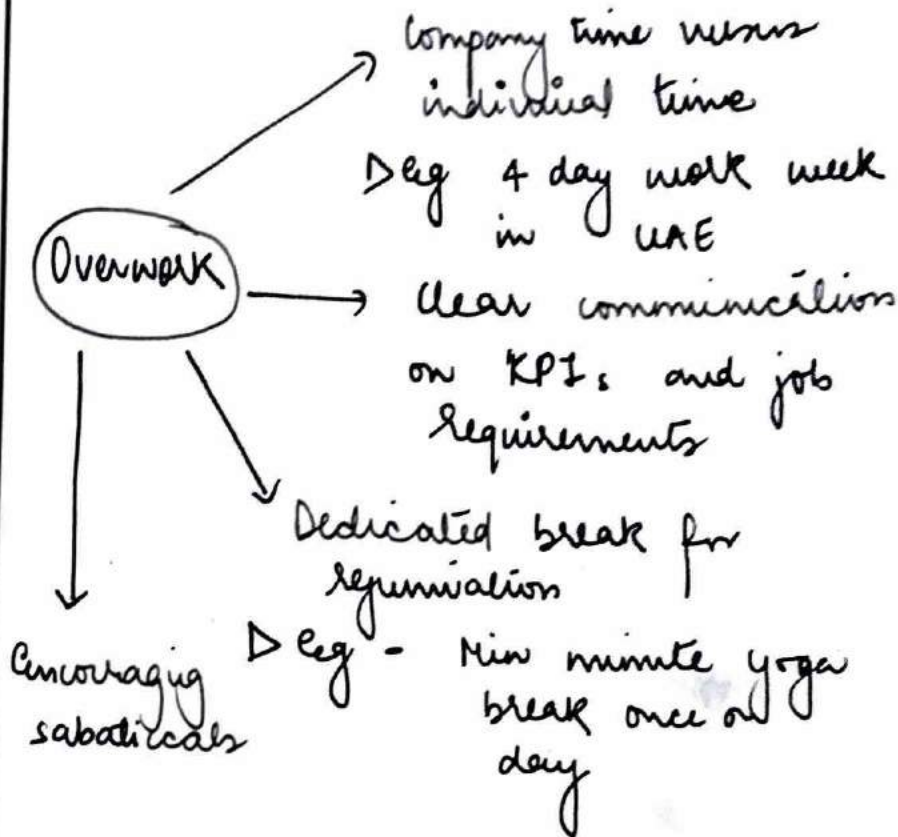 Company time versus
individual time
▷ eg 4 day work week
in UAE
Overwork
Clear communication
on KPIs and job
requirements
Dedicated break for
rejunivation
▷ eg - Min minute yoga
break once on
day
Encouraging
sabaticcals